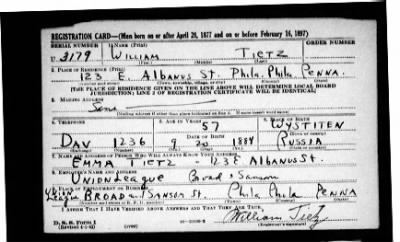 REGISTRATION CARD—(Men born on or after April 28, 1877 and on or before February 16, 1897)
SERIAL NUMBER 1. NAME (Print) ORDER NUMBER
U 3179 WILLIAM TIETZ
(First) (Middle) (Last)
2. PLACE OF RESIDENCE (Print)
123 E. ALBANUS ST. PHILA. PHILA. PENNA.
(Number and street) (Town, township, village, or city) (County) (State)
[THE PLACE OF RESIDENCE GIVEN ON THE LINE ABOVE WILL DETERMINE LOCAL BOARD
JURISDICTION; LINE 2 OF REGISTRATION CERTIFICATE WILL BE IDENTICAL]
3. MAILING ADDRESS
Same
[Mailing address if other than place indicated on line 2. If same insert word same]
4. TELEPHONE 5. AGE IN YEARS 6. PLACE OF BIRTH
57 WYSTITEN
DAV 1236 DATE OF BIRTH 9 20 1884 RUSSIA
7. NAME AND ADDRESS OF PERSON WHO WILL ALWAYS KNOW YOUR ADDRESS
EMMA TIETZ - 123 E ALBANUS ST.
8. EMPLOYER'S NAME AND ADDRESS
UNION LEAGUE Broad & Sansom
9. PLACE OF EMPLOYMENT OR BUSINESS
UNION League BROAD & SANSOM ST. PHILA PHILA PENNA
I AFFIRM THAT I HAVE VERIFIED ABOVE ANSWERS AND THAT THEY ARE TRUE.
D. S. S. Form 1
(Revised 4-1-42) (over) William Tietz